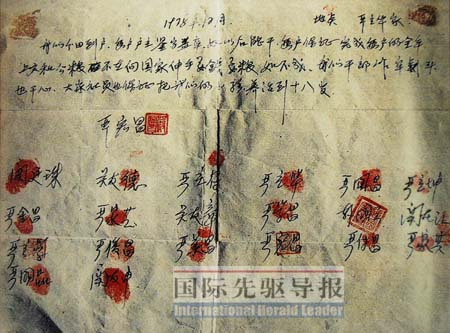 1978.12月 地点 严立华家
我们分田到户,每户户主签字盖章,如以后能干,每户保证完成每户的全年
上交和公粮,不在向国家伸手要钱要粮,如不成,我们干部作牢刹头
也干心,大家社员也保证把我们的小孩养活到十八岁
严宏昌
关廷珠 关友德 严立付 严立华 严国昌 严立坤
严金昌 严家芝 关友章 严学昌 韩国云 关友江
严立学 严俊昌 严美昌 严宏昌 严付昌 严家其
严国品 关友申
国际先驱导报
International Herald Leader